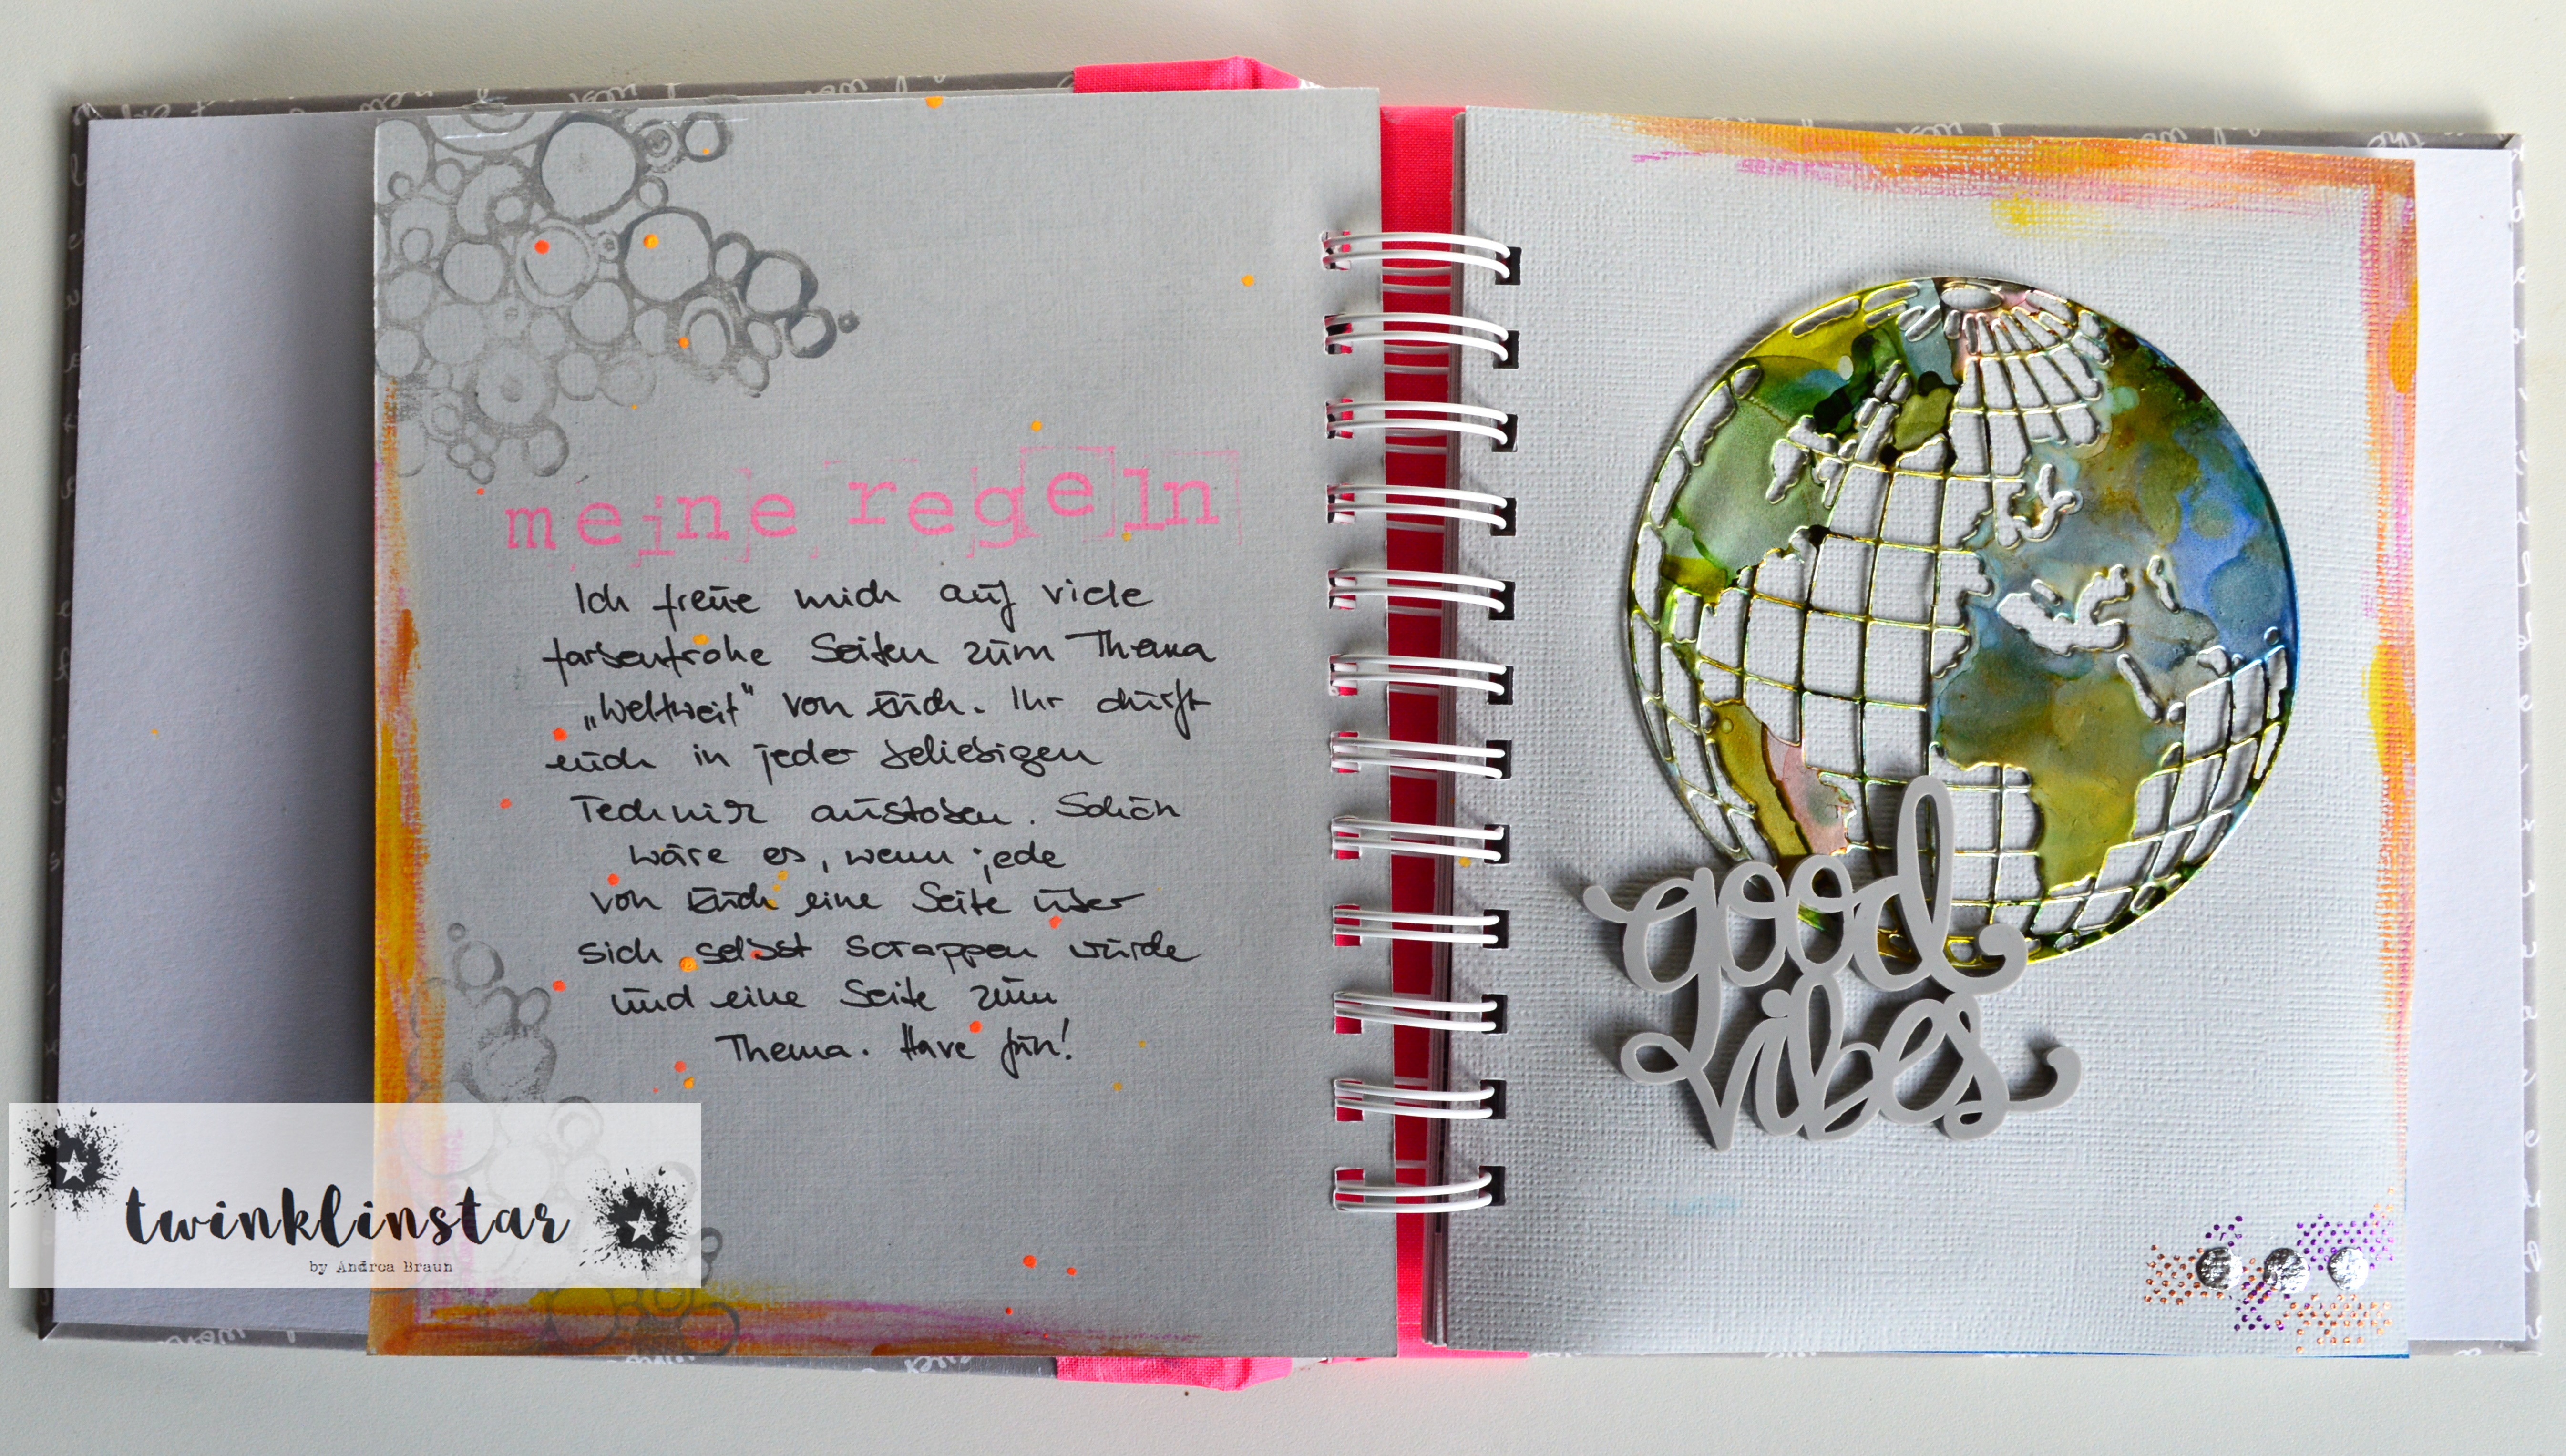 meine regeln
Ich freue mich auf viele
farbenfrohe Seiten zum Thema
„Weltweit" von Euch. Ihr dürft
euch in jeder beliebigen
Technik austoben. Schön
wäre es, wenn jede
von Euch eine Seite über
sich selbst scrappen würde
und eine Seite zum
Thema. Have fun!
good
vibes
twinklinstar
by Androa Braun